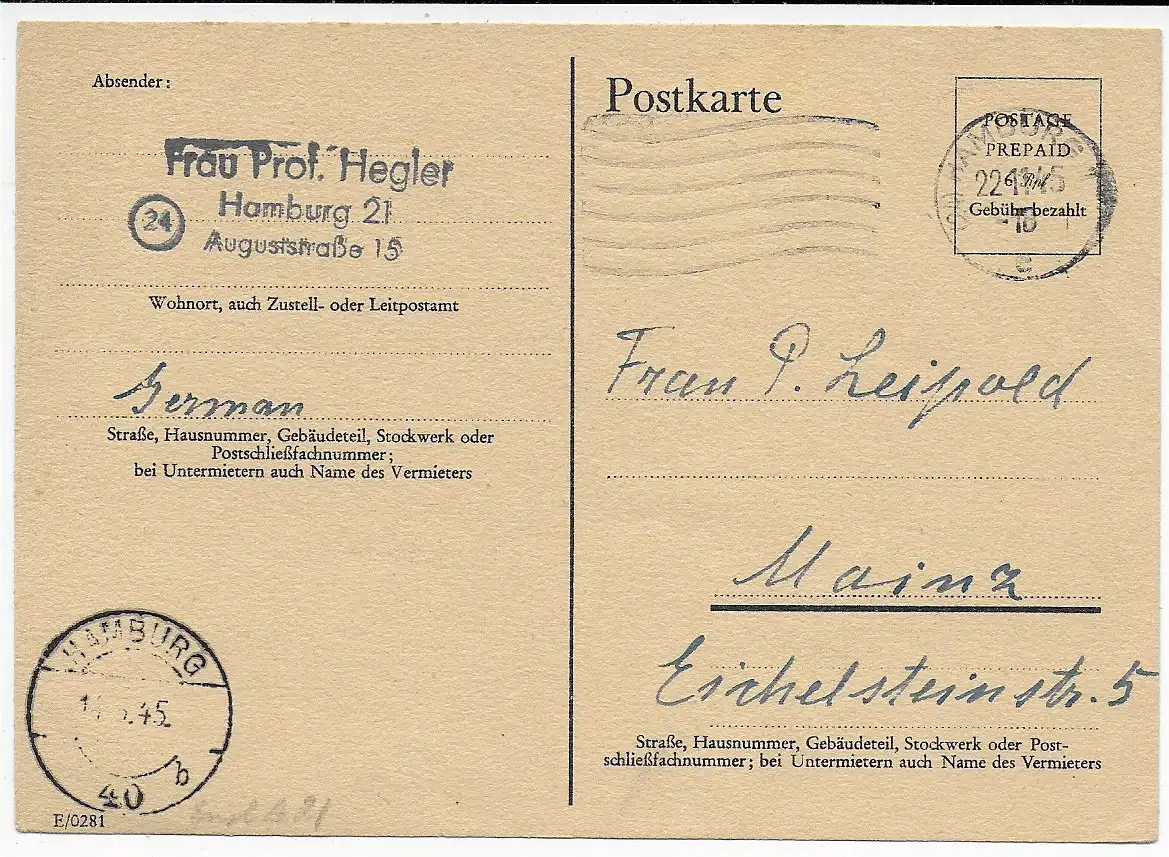 Absender:
Frau Prof. Hegler
Hamburg 21
24
Auguststraße 15
Wohnort, auch Zustell- oder Leitpostamt
German
Straße, Hausnummer, Gebäudeteil, Stockwerk oder
Postschließfachnummer;
bei Untermietern auch Name des Vermieters
HAMBURG
45
b
40
E/0281
Postkarte
POSTAGE
PREPAID
6 Rpf
Gebühr bezahlt
HAMBURG
22.11.45
-16
c
Frau P. Leipold
Mainz
Eichelsteinstr. 5
Straße, Hausnummer, Gebäudeteil, Stockwerk oder Post-
schließfachnummer; bei Untermietern auch Name des Vermieters